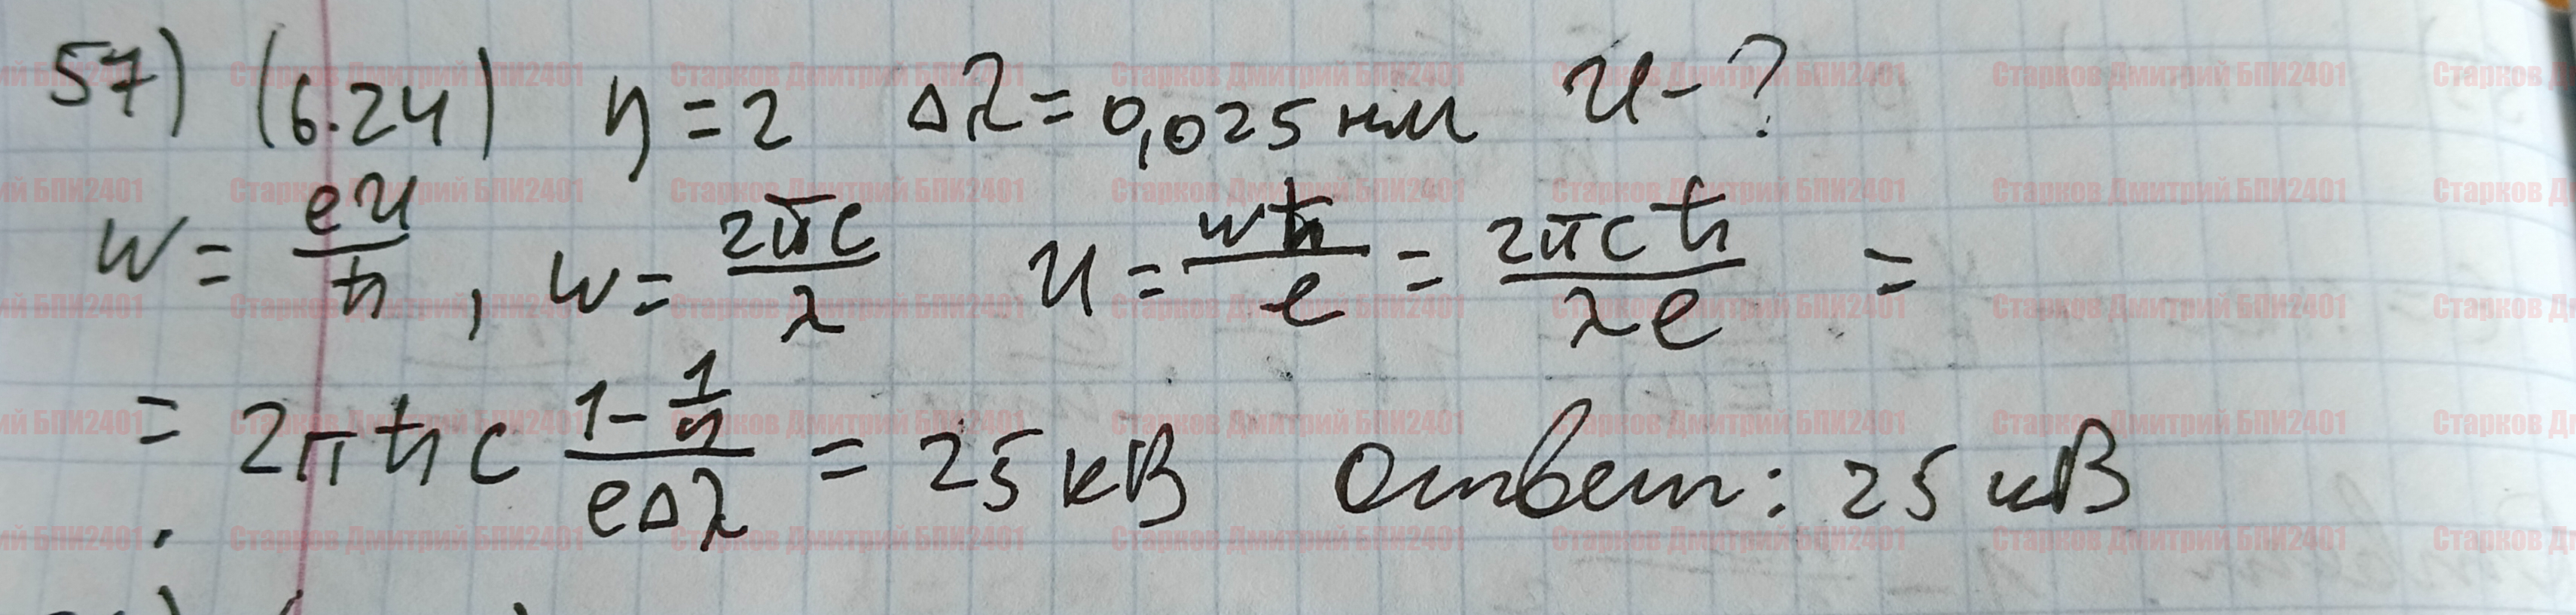 57) (6.24) η = 2 Δλ = 0,025 нм U - ?
ω = eU/ħ , ω = 2πc/λ U = ωħ/e = 2πcħ/λe =
= 2πħc (1 - 1/η)/eΔλ = 25 кВ Ответ: 25 кВ
Старков Дмитрий БПИ2401